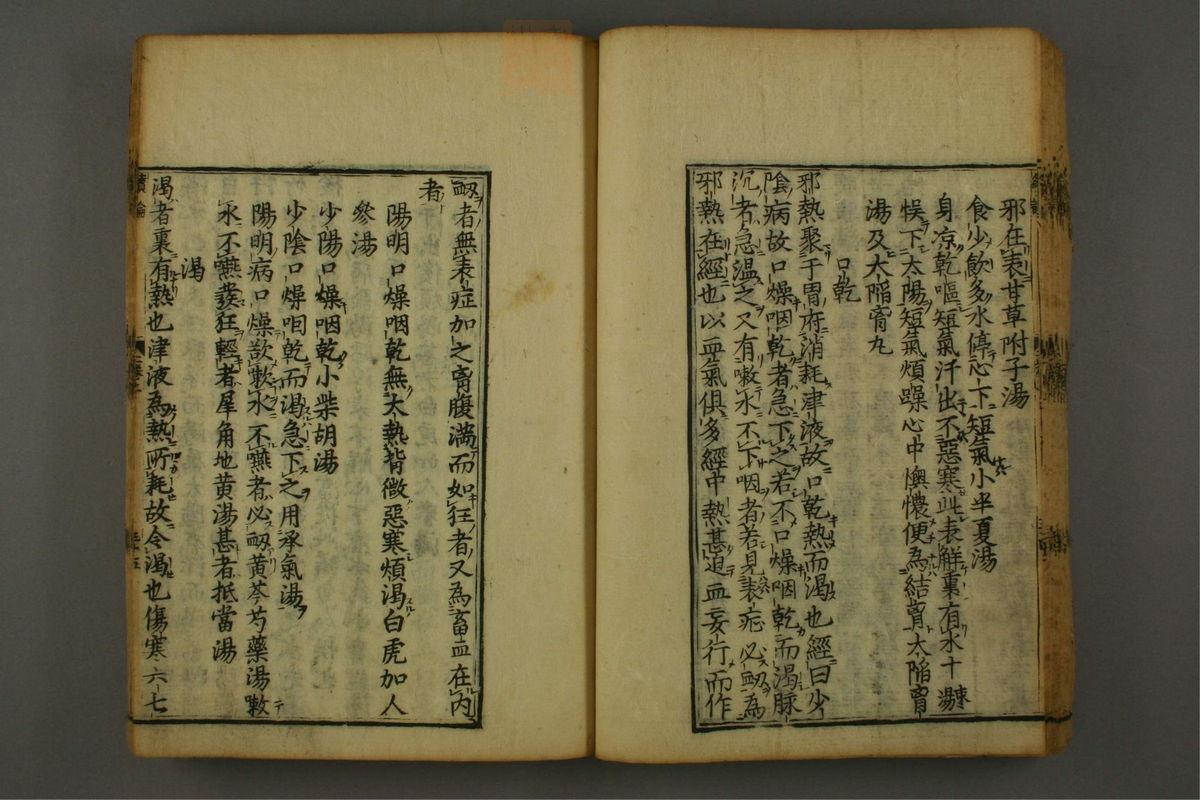 邪在表甘草附子湯
食少飲多水停心下短氣小半夏湯
身涼乾嘔短氣汗出不惡寒此表解裏有水十棗湯
悞下太陽短氣煩躁心中懊憹便為結胷大陥胷
湯及大陥胷丸
口乾
邪熱聚于胃府消耗津液故口乾熱而渴也經曰少
陰病故口燥咽乾者急下之若不口燥咽乾而渴脉
沉者急温之又有嗽水不下咽者若見表症必衂為
邪熱在經也以血氣俱多經中熱甚迫血妄行而作
衂者無表症加之胷腹滿而如狂者又為畜血在内
者
陽明口燥咽乾無大熱背微惡寒煩渴白虎加人
參湯
少陽口燥咽乾小柴胡湯
少陰口燥咽乾而渴急下之用承氣湯
陽明病口燥歃嗽水不嚥者必衂黄芩芍藥湯嗽
水不嚥發狂輕者犀角地黄湯甚者抵當湯
渴
渴者裏有熱也津液為熱所耗故令渴也傷寒六七